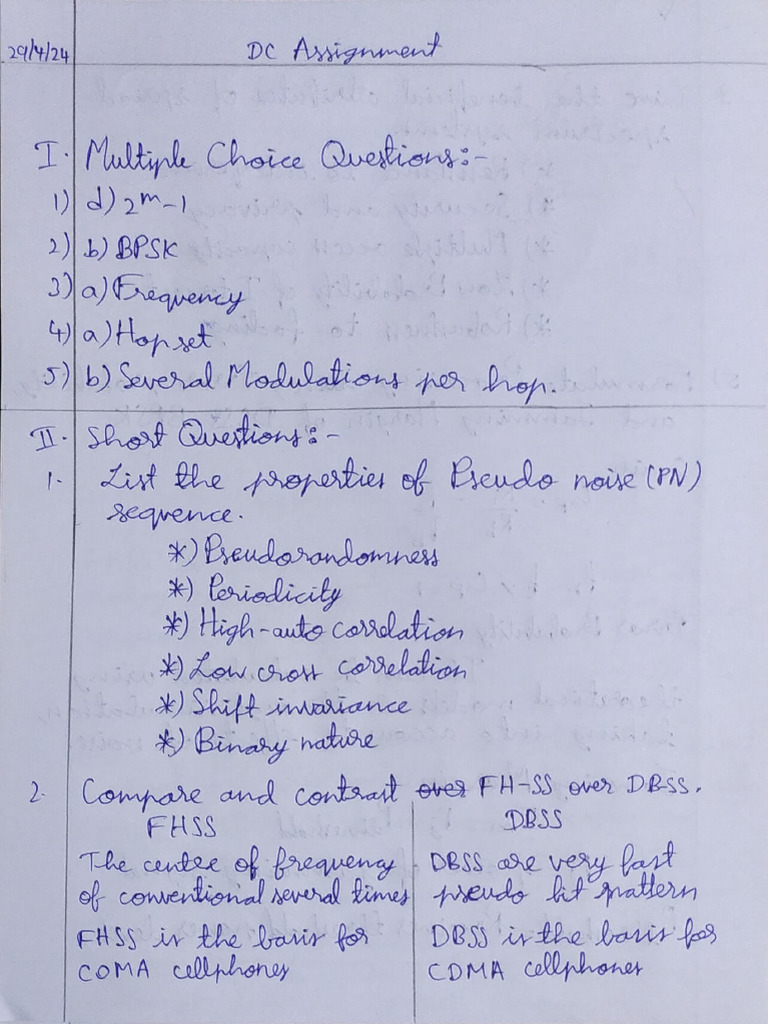 29/4/24 DC Assignment
I. Multiple Choice Questions:-
1) d) 2^m-1
2) b) BPSK
3) a) Frequency
4) a) Hop set
5) b) Several Modulations per hop.
II. Short Questions:-
1. List the properties of Pseudo noise (PN)
sequence.
*) Pseudorandomness
*) Periodicity
*) High-auto correlation
*) Low cross correlation
*) Shift invariance
*) Binary nature
2. Compare and contrast over FH-SS over DB-SS.
FHSS DBSS
The centee of frequency DBSS are very fast
of conventional several times pseudo bit pattern
FHSS is the basis for DBSS is the basis for
CDMA cellphones CDMA cellphones